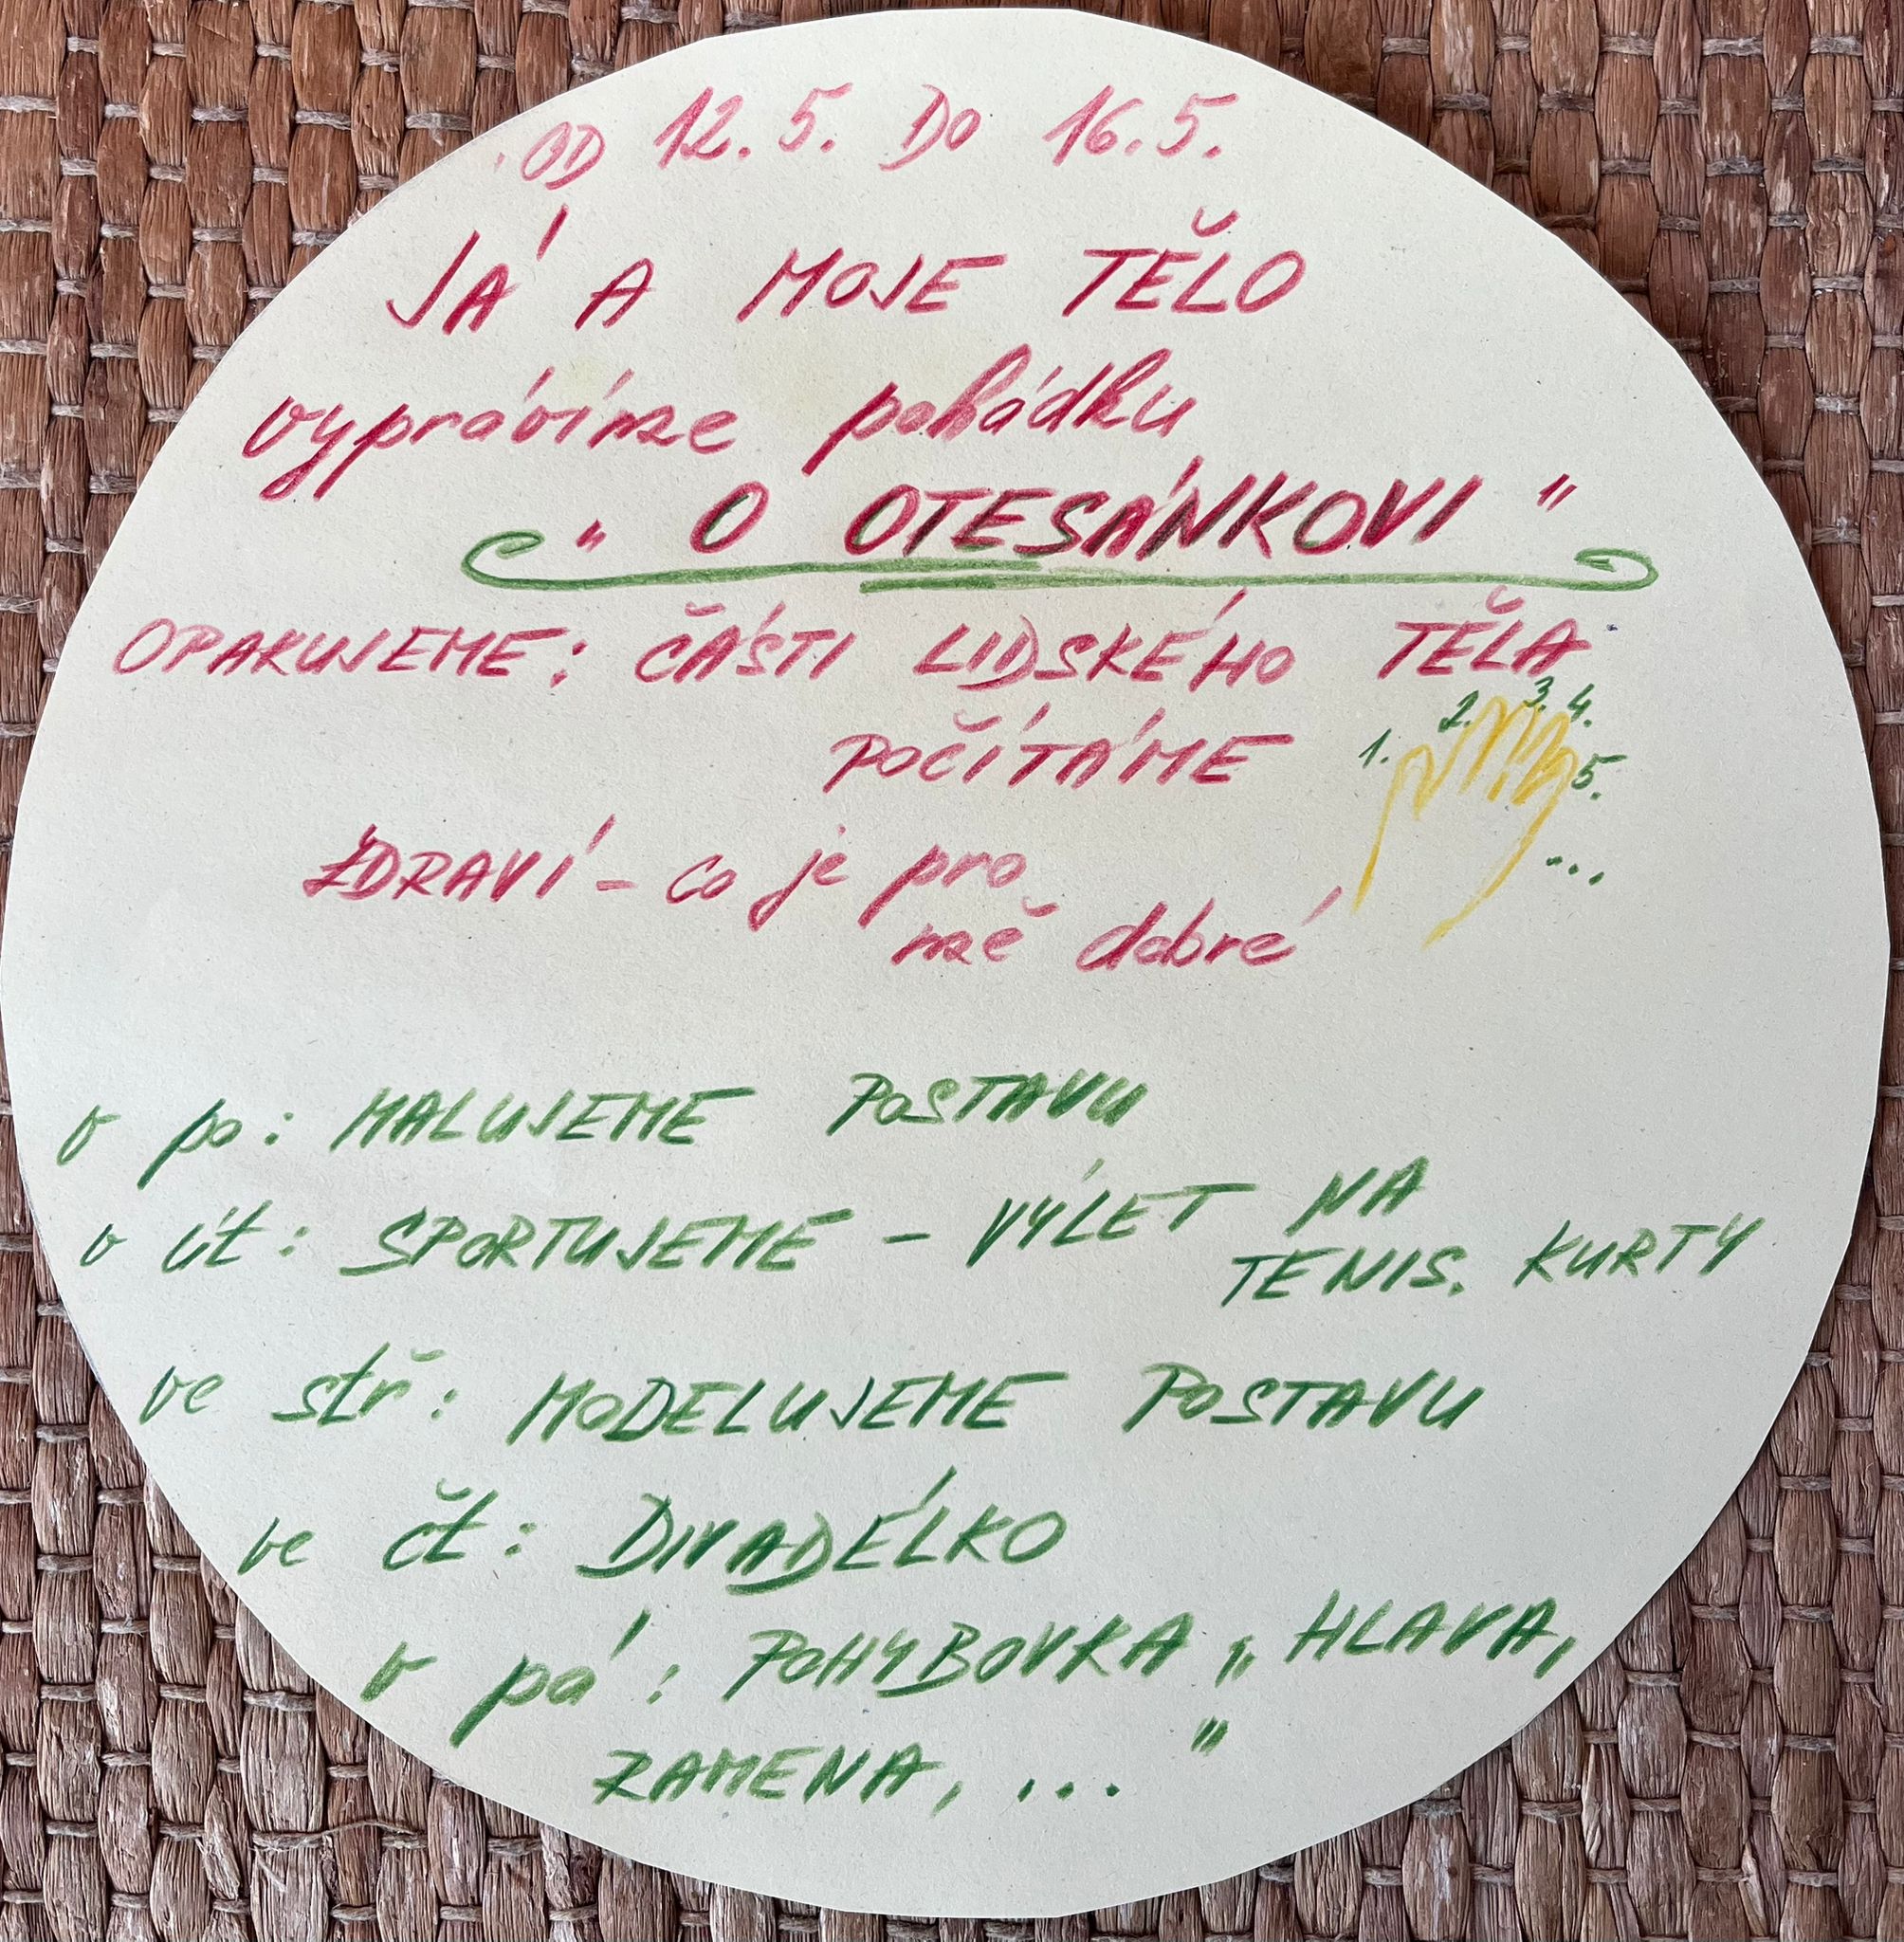 OD 12.5. DO 16.5.
JÁ A MOJE TĚLO
vyprávíme pohádku
" O OTESÁNKOVI "
OPAKUJEME: ČÁSTI LIDSKÉHO TĚLA
POČÍTÁME 1. 2. 3. 4. 5. ...
ZDRAVÍ - co je pro
mě dobré
v po: MALUJEME POSTAVU
v út: SPORTUJEME - VÝLET NA
TENIS. KURTY
ve stř: MODELUJEME POSTAVU
ve čt: DIVADÉLKO
v pá: POHYBOVKA „ HLAVA,
RAMENA, ... "